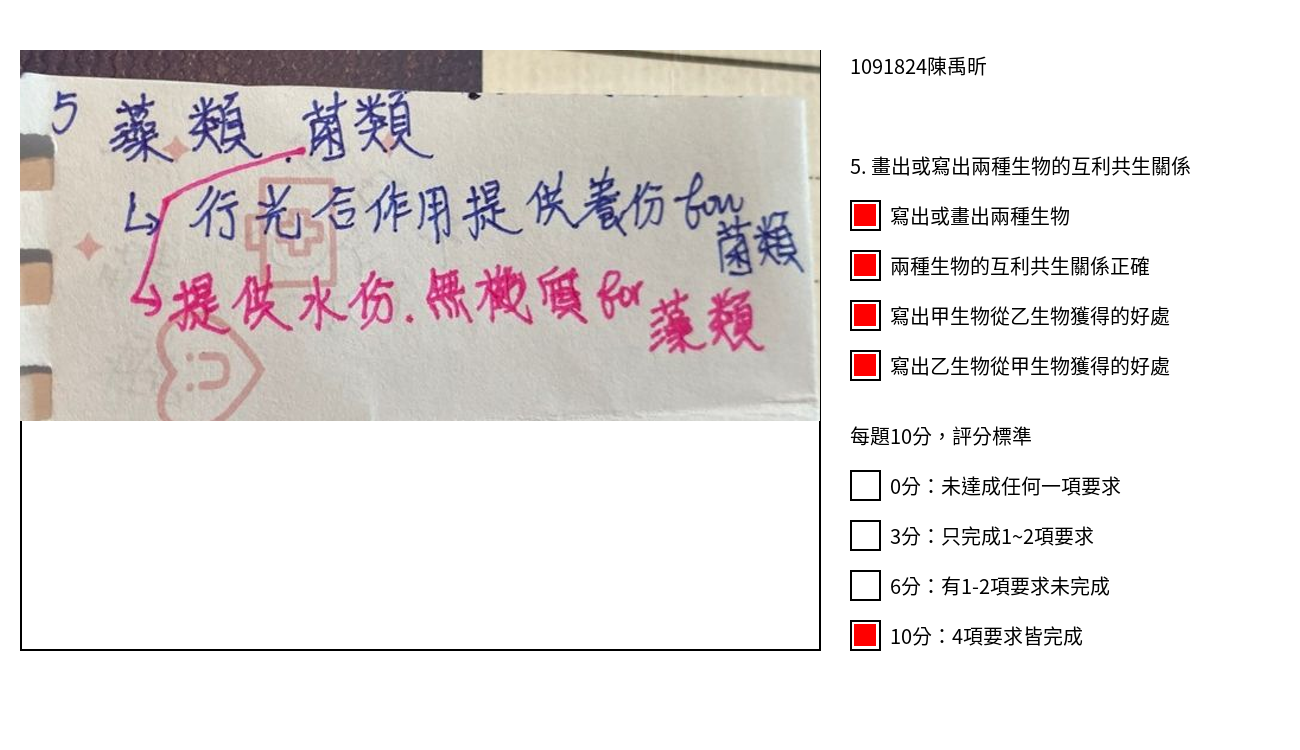 5 藻類.菌類
↳ 行光合作用提供養份for
菌類
↳提供水份.無機質for
藻類
1091824陳禹昕
5. 畫出或寫出兩種生物的互利共生關係
寫出或畫出兩種生物
兩種生物的互利共生關係正確
寫出甲生物從乙生物獲得的好處
寫出乙生物從甲生物獲得的好處
每題10分，評分標準
0分：未達成任何一項要求
3分：只完成1~2項要求
6分：有1-2項要求未完成
10分：4項要求皆完成